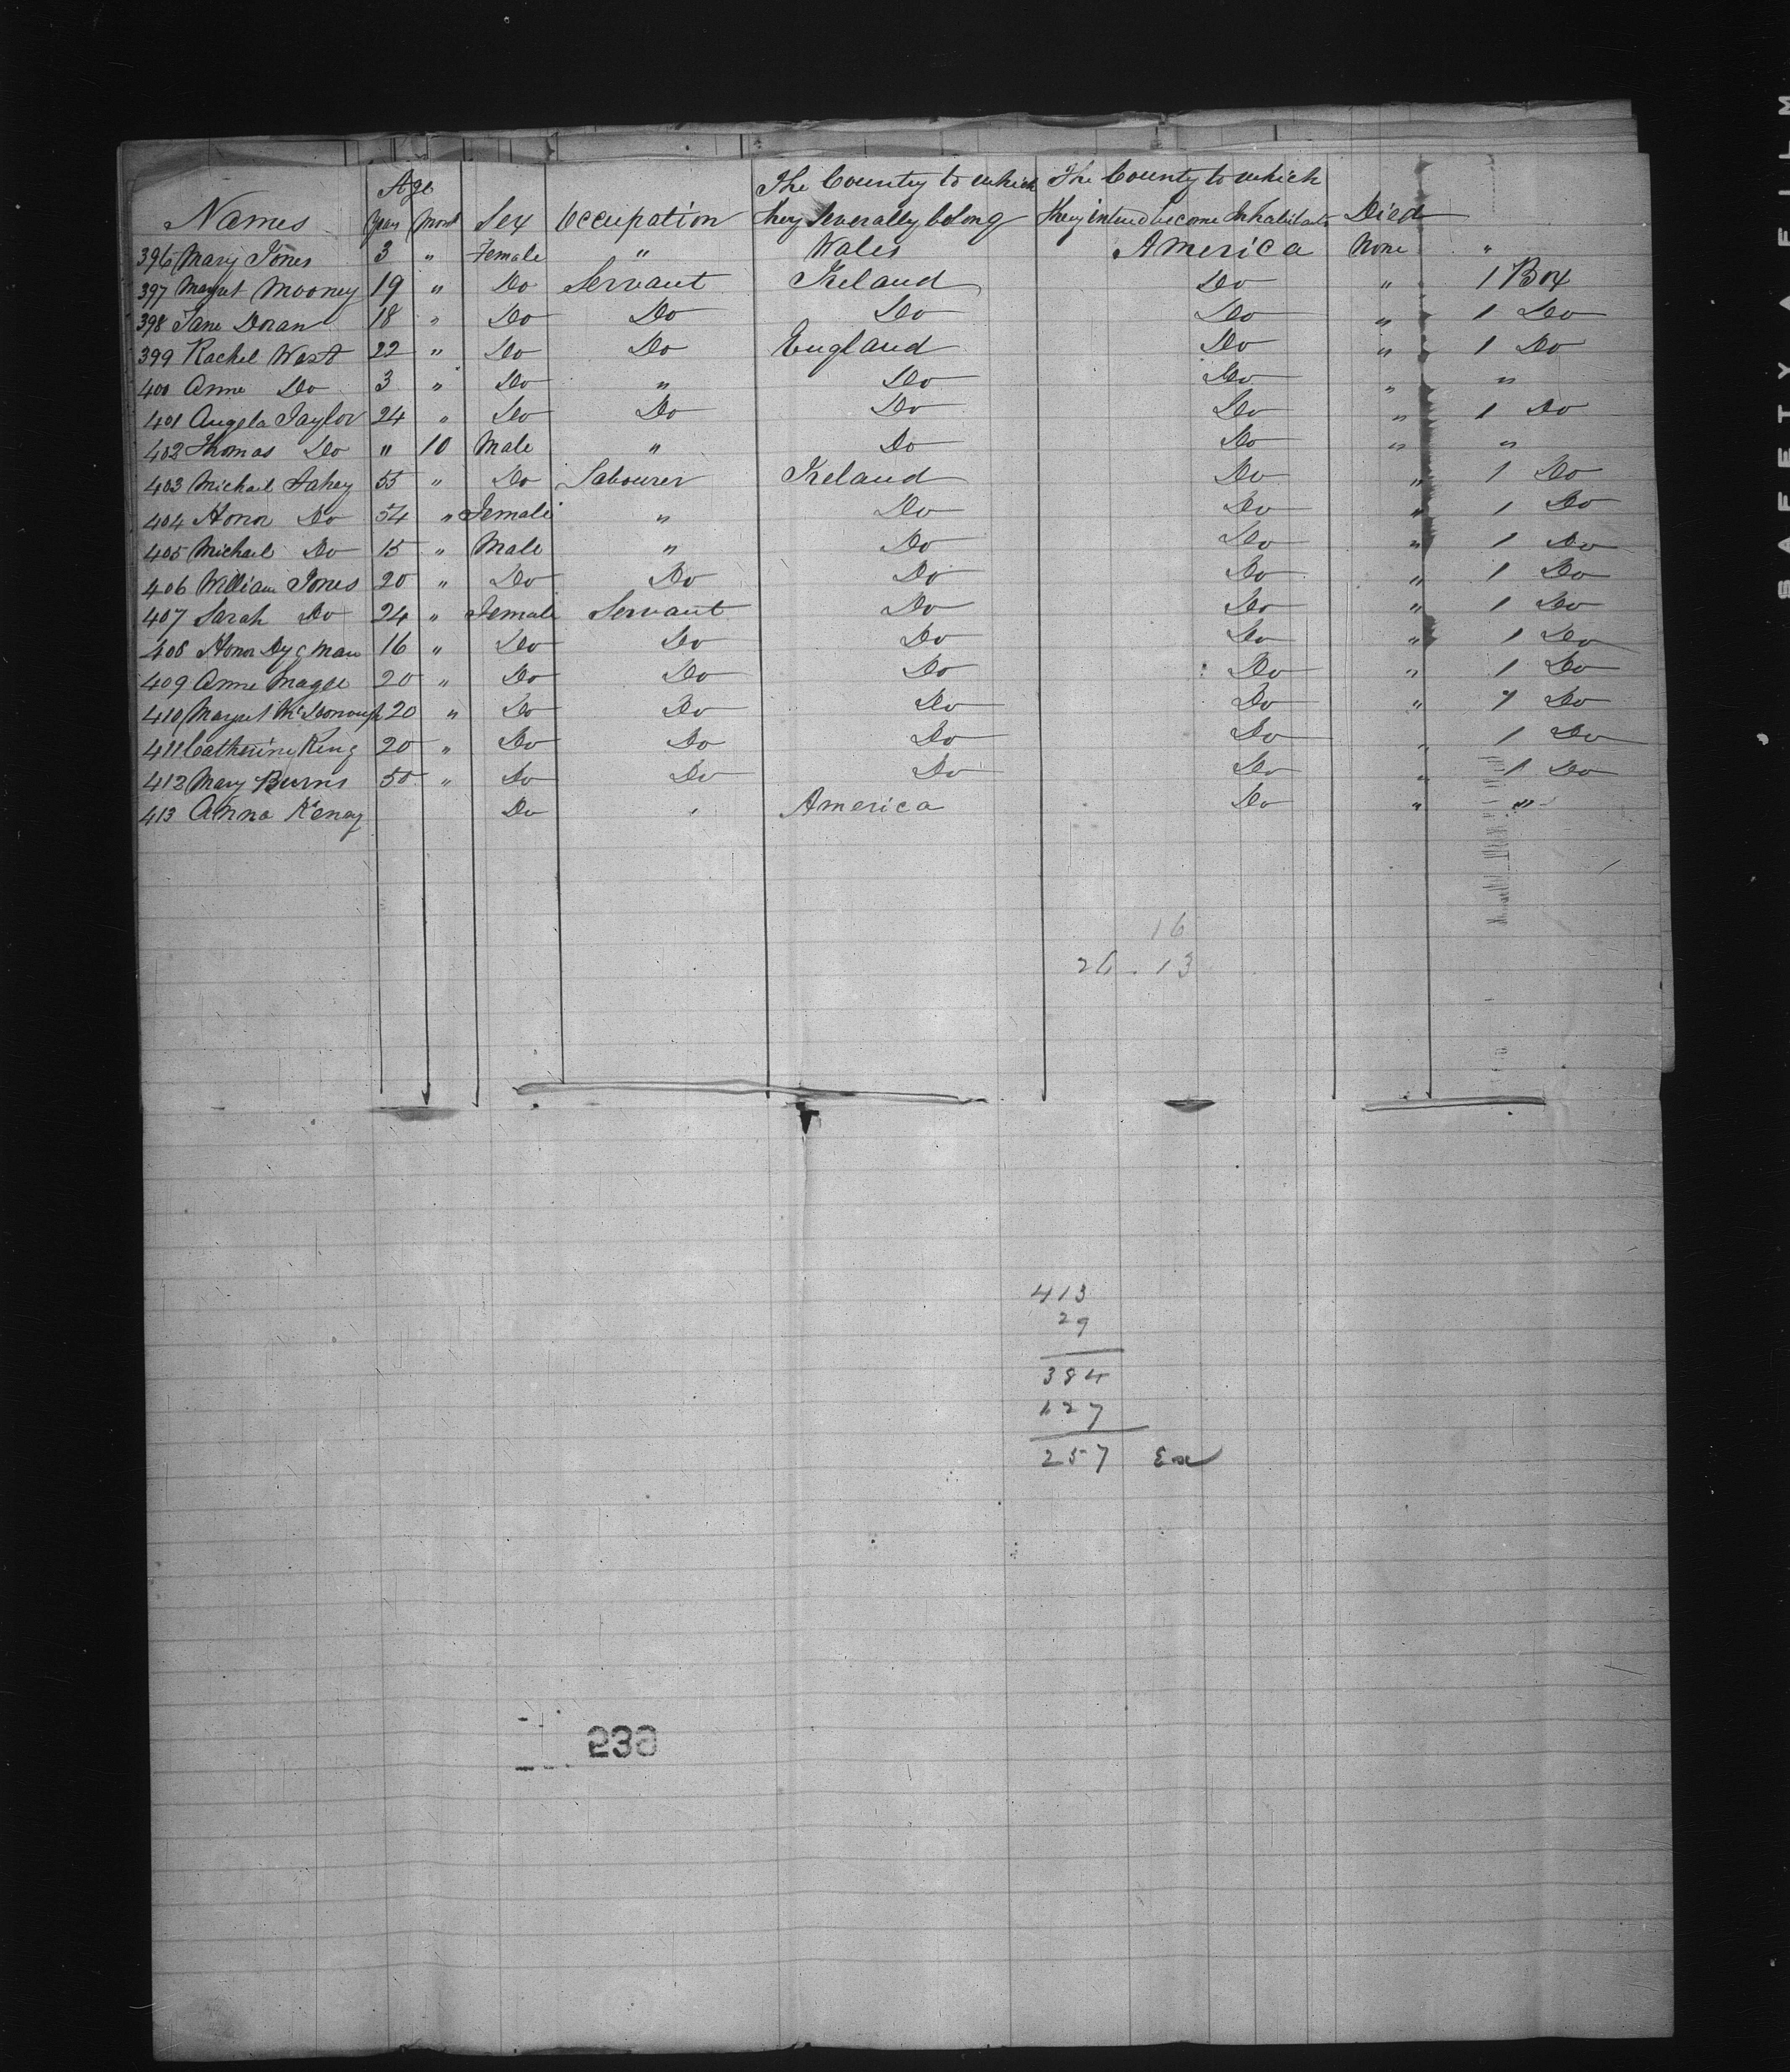 Age The Country to which The Country to which
Names Years Mont Sex Occupation they severally belong they intend become Inhabitants Died
396 Mary Jones 3 " Female " Wales America None "
397 Margret Mooney 19 " Do Servant Ireland Do " 1 Box
398 Jane Doran 18 " Do Do Do Do " 1 Do
399 Rachel West 22 " Do Do England Do " 1 Do
400 Anne Do 3 " Do " Do Do " "
401 Angela Taylor 24 " Do Do Do Do " 1 Do
402 Thomas Do " 10 Male " Do Do " "
403 Michael Fahey 55 " Do Labourer Ireland Do " 1 Do
404 Honor Do 54 " Female " Do Do " 1 Do
405 Michael Do 15 " Male " Do Do " 1 Do
406 William Jones 20 " Do Do Do Do " 1 Do
407 Sarah Do 24 " Female Servant Do Do " 1 Do
408 Honor 16 " Do Do Do Do " 1 Do
409 Anne Magee 20 " Do Do Do Do " 1 Do
410 Margret McDonough 20 " Do Do Do Do " 1 Do
411 Catherine King 20 " Do Do Do Do " 1 Do
412 Mary Burns 50 " Do Do Do Do " 1 Do
413 Anna Do America Do " "
16
26 . 13
413
29
384
127
257
SAFETY FILM